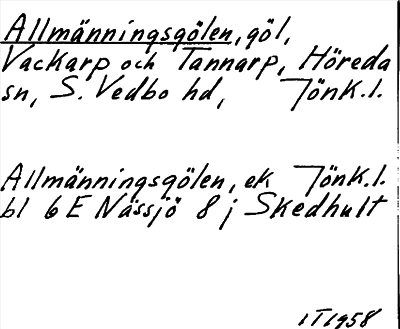 Allmänningsgölen, göl,
Vackarp och Tannarp, Höreda
sn, S. Vedbo hd, Jönk.l.
Allmänningsgölen, ek Jönk.l.
bl 6E Nässjö 8j Skedhult
IT1958